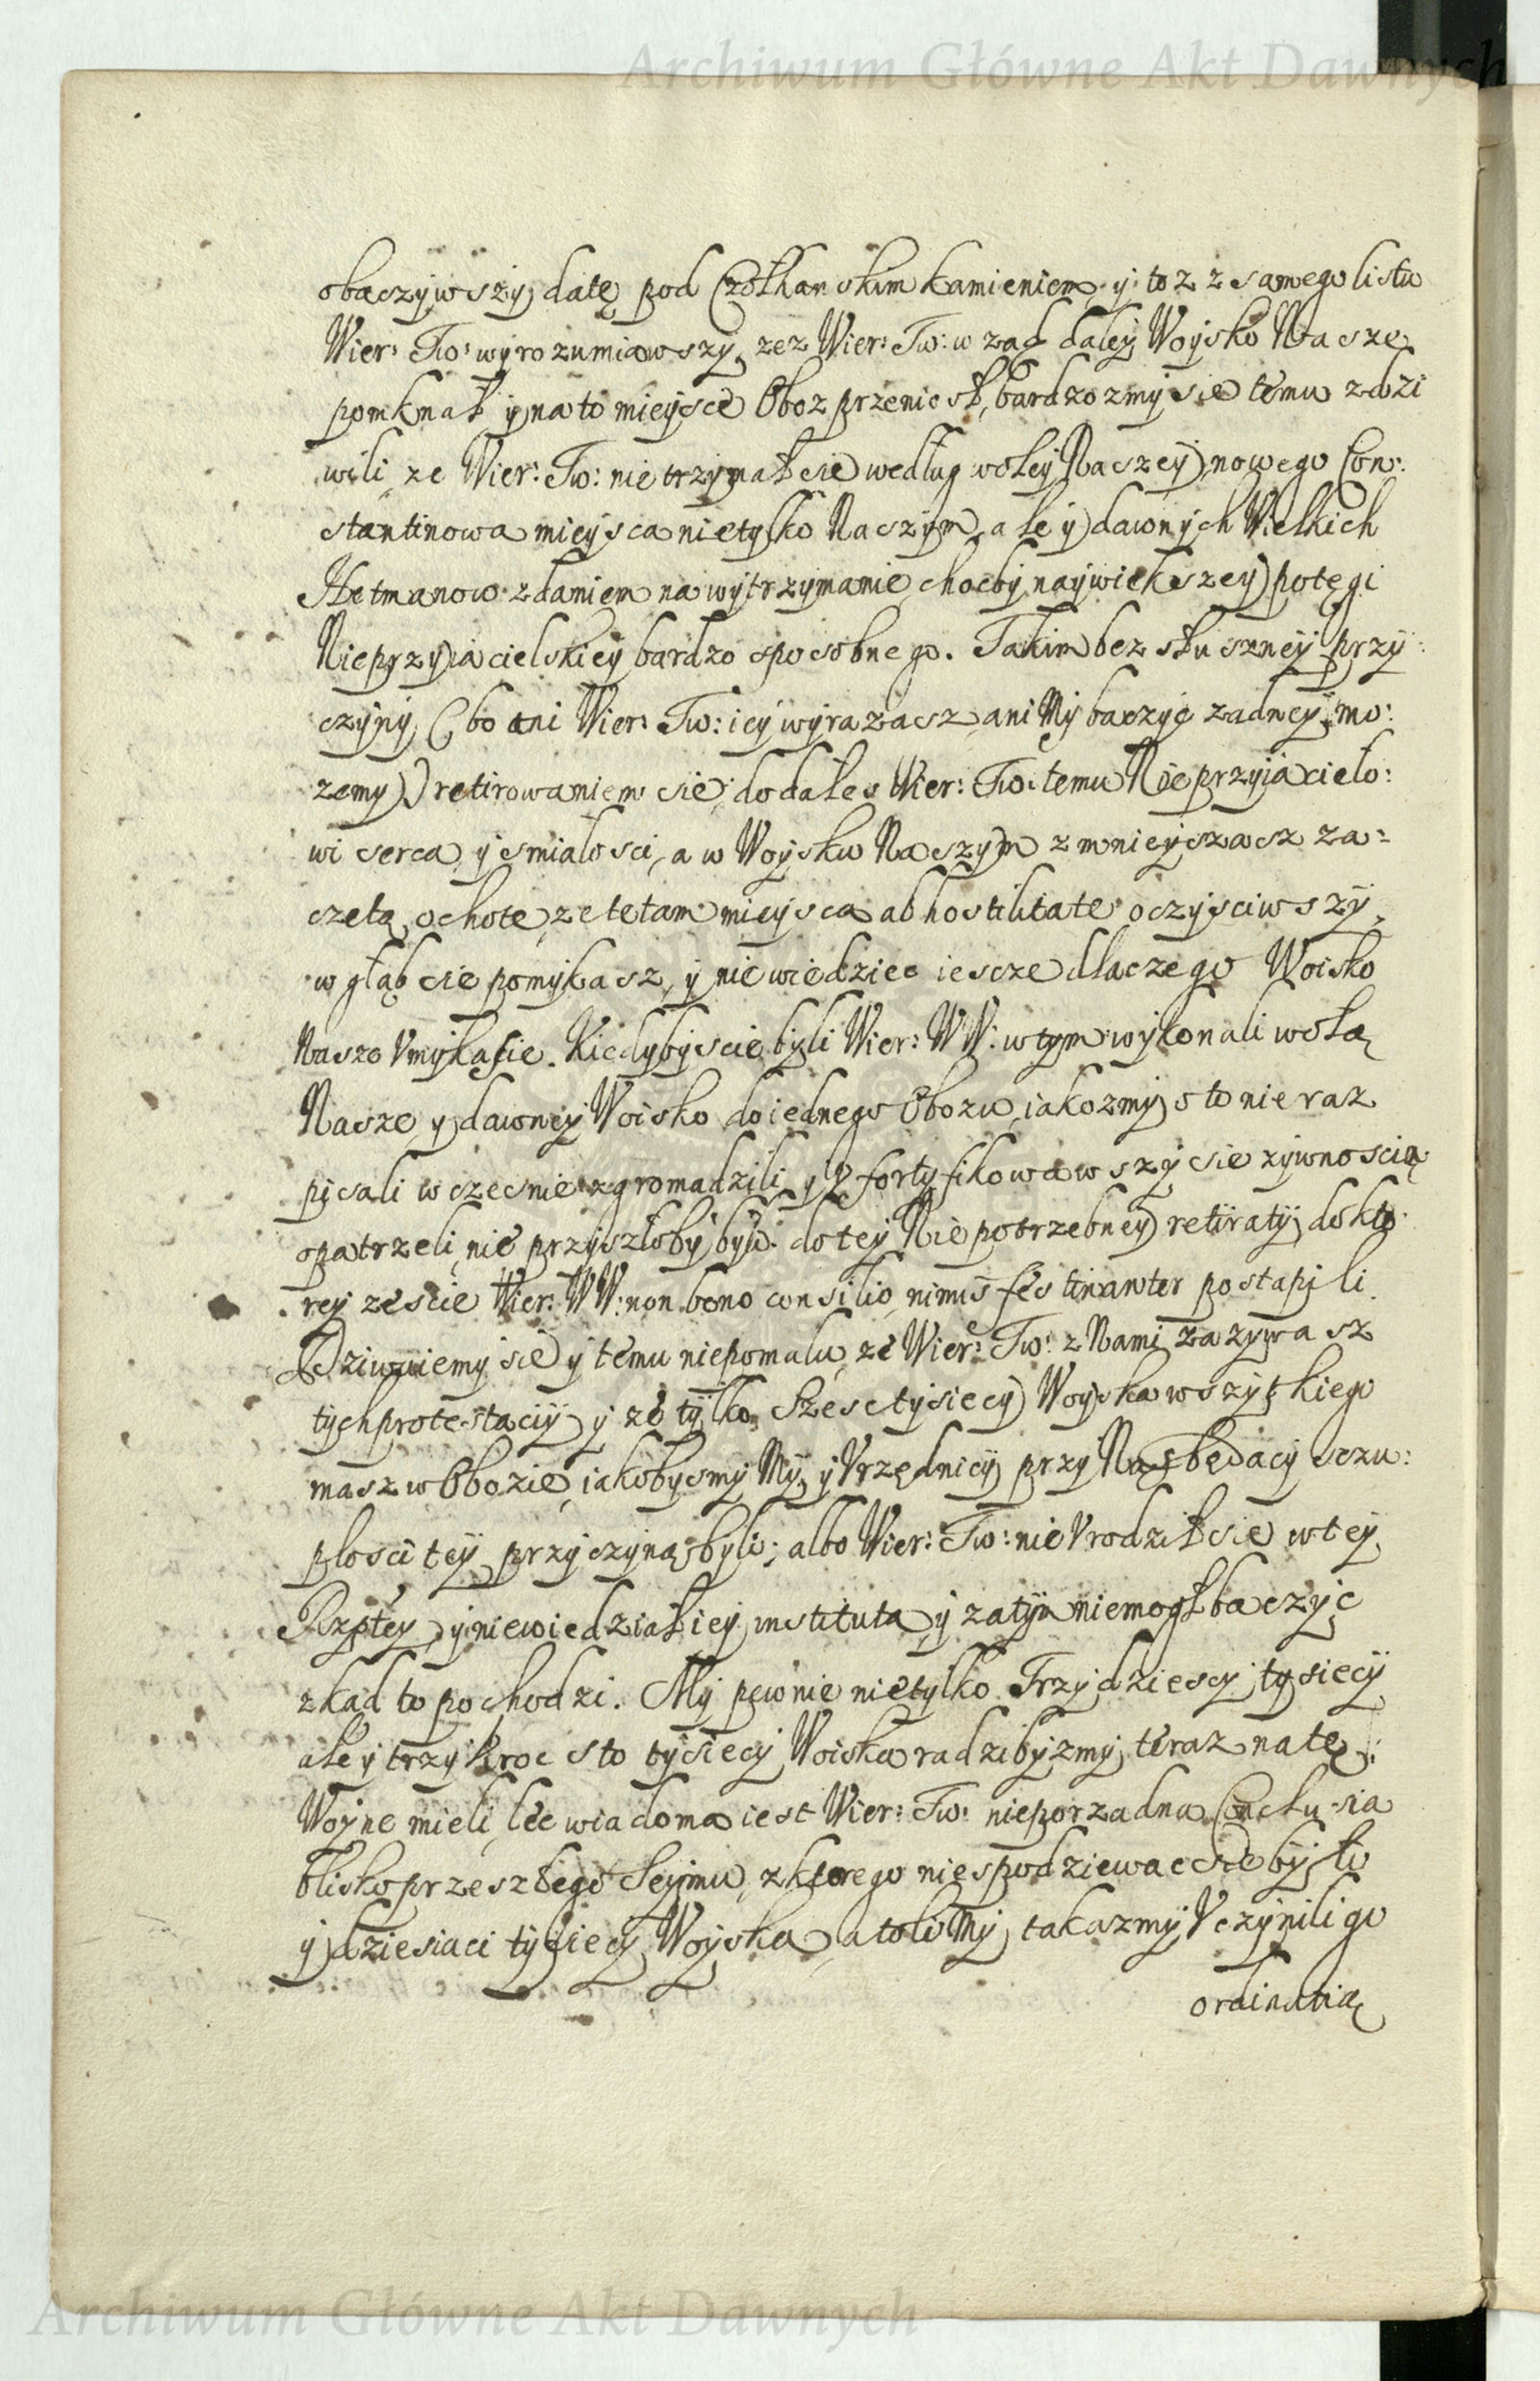 Archiwum Główne Akt Dawnych
obaczywszy datę pod Czołhanskim Kamieniem y toz z samego listu
Wier: Tw: wyrozumiawszy, zez Wier: Tw: w zad daley Woysko Nasze
pomknał y na to mieysce Oboz przeniosł, bardzo zmy sie temu zdzi
wili, ze Wier: Tw: nie trzymał sie według woley Naszey nowego Con:
stantinowa mieysca nietylko Naszym, ale y dawnych Wielkich
Hetmanow zdaniem na wytrzymanie chocby naywiekszey potęgi
Nieprzyiacielskiey bardzo sposobnego. Takim bez słuszney przy:
czyny, (bo ani Wier: Tw: iey wyrazasz, ani My baczyc zadney mo:
zemy) retirowaniem sie, dodałes Wier: Tw: temu Nieprzyiacielo:
wi serca y smiałosci, a w Woysku Naszym zmnieyszasz za=
czetą ochote, ze te tam mieysca ab hostilitate oczysciwszy,
w głąb sie pomykasz, y nie wiedziec iescze dlaczego Woisko
Nasze Vmyka sie. Kiedybyscie byli Wier: WW: w tym wykonali wolą
Nasze, y dawney Woisko do iednego Obozu, iakozmy sto nie raz
pisali wczesnie zgromadzili, y Vfortyfikowawszy sie zywnoscią
opatrzeli, nie przyszłoby było do tey Niepotrzebney retiraty, do kto:
rey zescie Wier: WW: non bono consilio, nimis festinanter postąpili.
Dziwuiemy sie y temu niepomalu, ze Wier: Tw: z Nami zazywasz
tych protestaciy y ze tylko szesc tysiecy Woyska wszytkiego
masz w Obozie, iakobysmy My, y Vrzędnicy przy Nas będący sczu:
płosci tey przyczyną byli; albo Wier: Tw: nie Vrodził sie w tey
Rzptey, y niewiedział iey instituta, y zatym niemogł baczyc
zkad to pochodzi. My pewnie nietylko Trzydziescy tysiecy
ale y trzykroc sto tysiecy Woiska radzibyzmy teraz na tę
Woyne mieli, lec wiadoma iest Wier: Tw: nieporzadna Conclusia
blisko przeszłego Seymu, z ktorego niespodziewac sie było
y dziesiaci tysiecy Woyska, a toli My, takazmy Vczynili go
ordinatią
Archiwum Główne Akt Dawnych